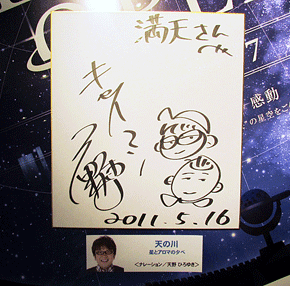 満天さん
江
キャイ〜ン
天野
2011.5.16
7
感動
の星空をこ
天の川
星とアロマの夕べ
<ナレーション/天野 ひろゆき>